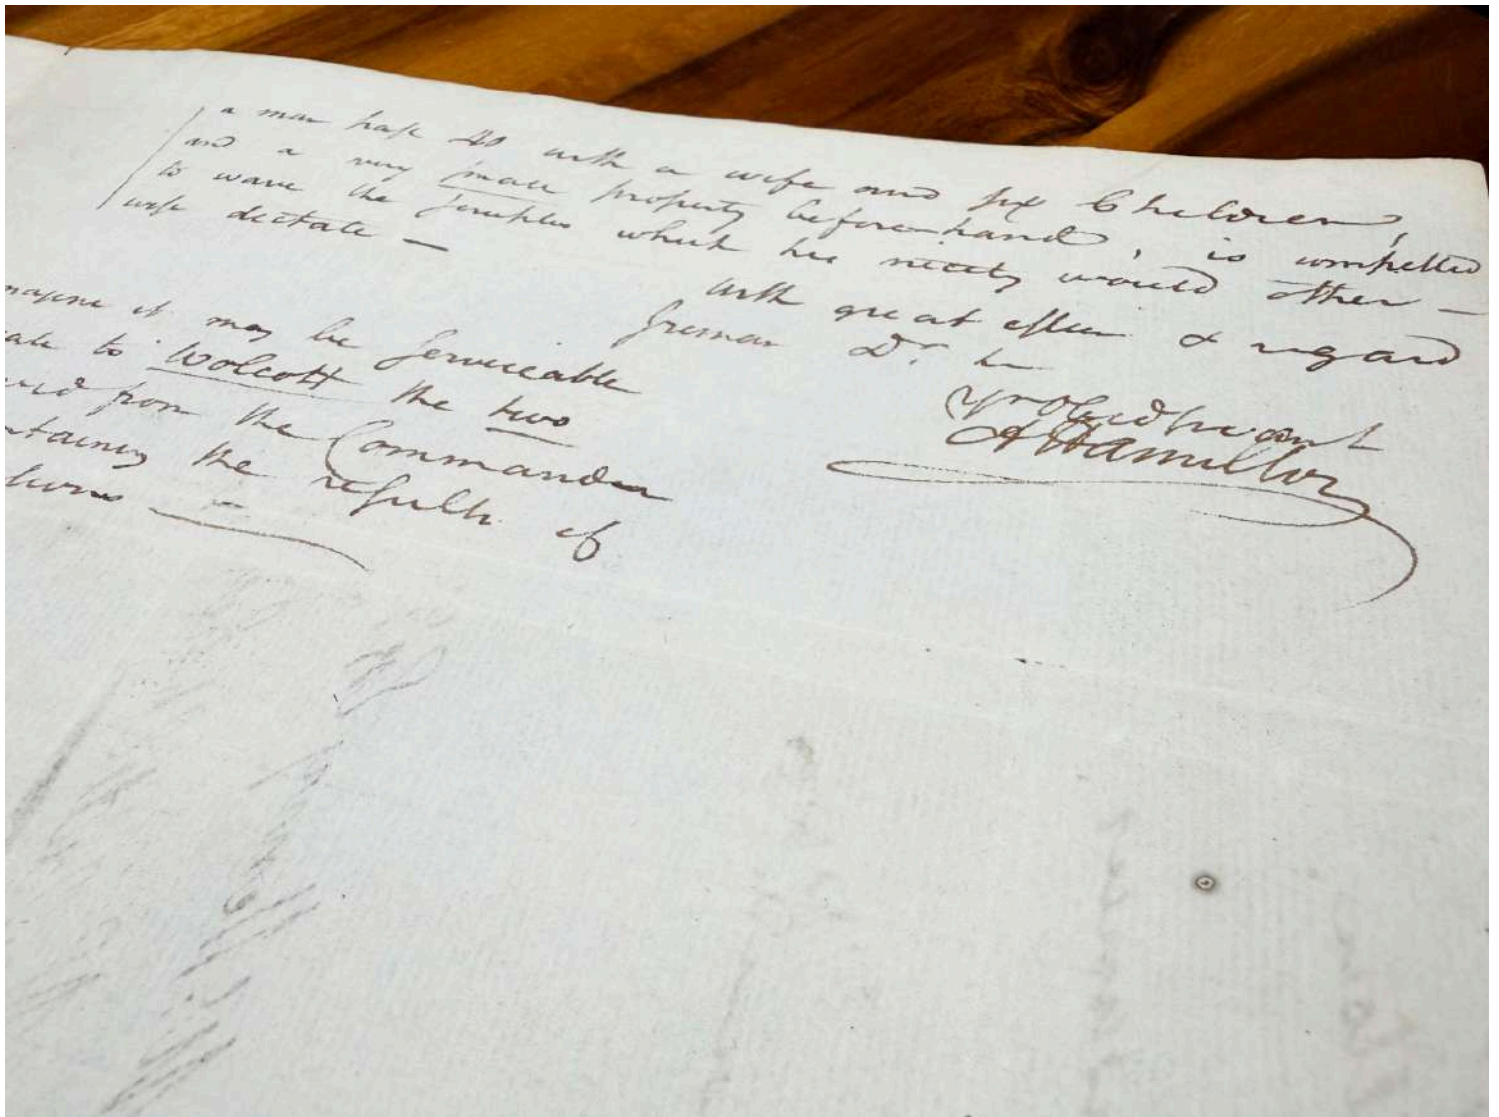 a man past 40 with a wife and six Children,
and a very small property beforehand, is compelled
to wave the scruples which his nicety would other-
wise dictate —
with great esteem & regard
I remain Dr. Sir
Yr Obed servant
A Hamilton
imagine it may be serviceable
ate to Wolcott the two
from the Commander
ntaining the results of